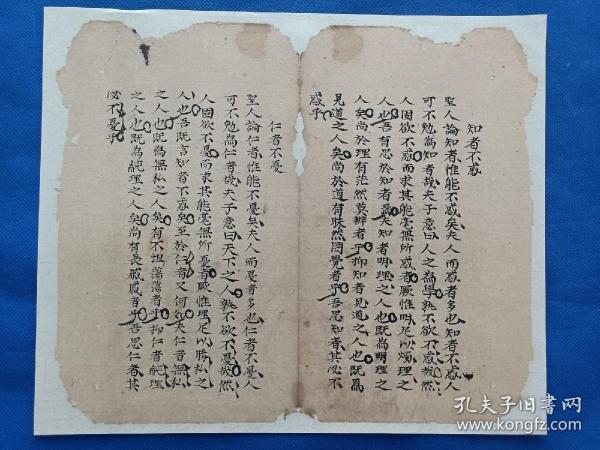 知者不惑
聖人論知者惟能不惑矣夫人而惑者多也知者不惑人
可不勉為知者哉夫子意曰人之為學孰不欲不惑哉然
人固欲不惑而求其能毫無所惑者厥惟明足以燭理之
人也吾有思於知者焉夫知者明理之人也既為明理之
人矣尚於理有茫然莫辨者乎抑知者見道之人也既為
見道之人矣尚於道有睽然罔覺者乎吾思知者其必不
惑乎
仁者不憂
聖人論仁者惟能不憂矣夫人而憂者多也仁者不憂人
可不勉為仁者哉夫子意曰天下之人孰不欲不憂哉然
人固欲不憂而求其能毫無所憂者厥惟理足以勝私之
人也吾既言知者不惑矣至於仁者又何如夫仁者無私
之人也既為無私之人矣有不坦蕩蕩者乎抑仁者純理
之人也既為純理之人矣尚有長戚戚者乎吾思仁者其
必不憂乎
孔夫子旧书网
www.kongfz.com